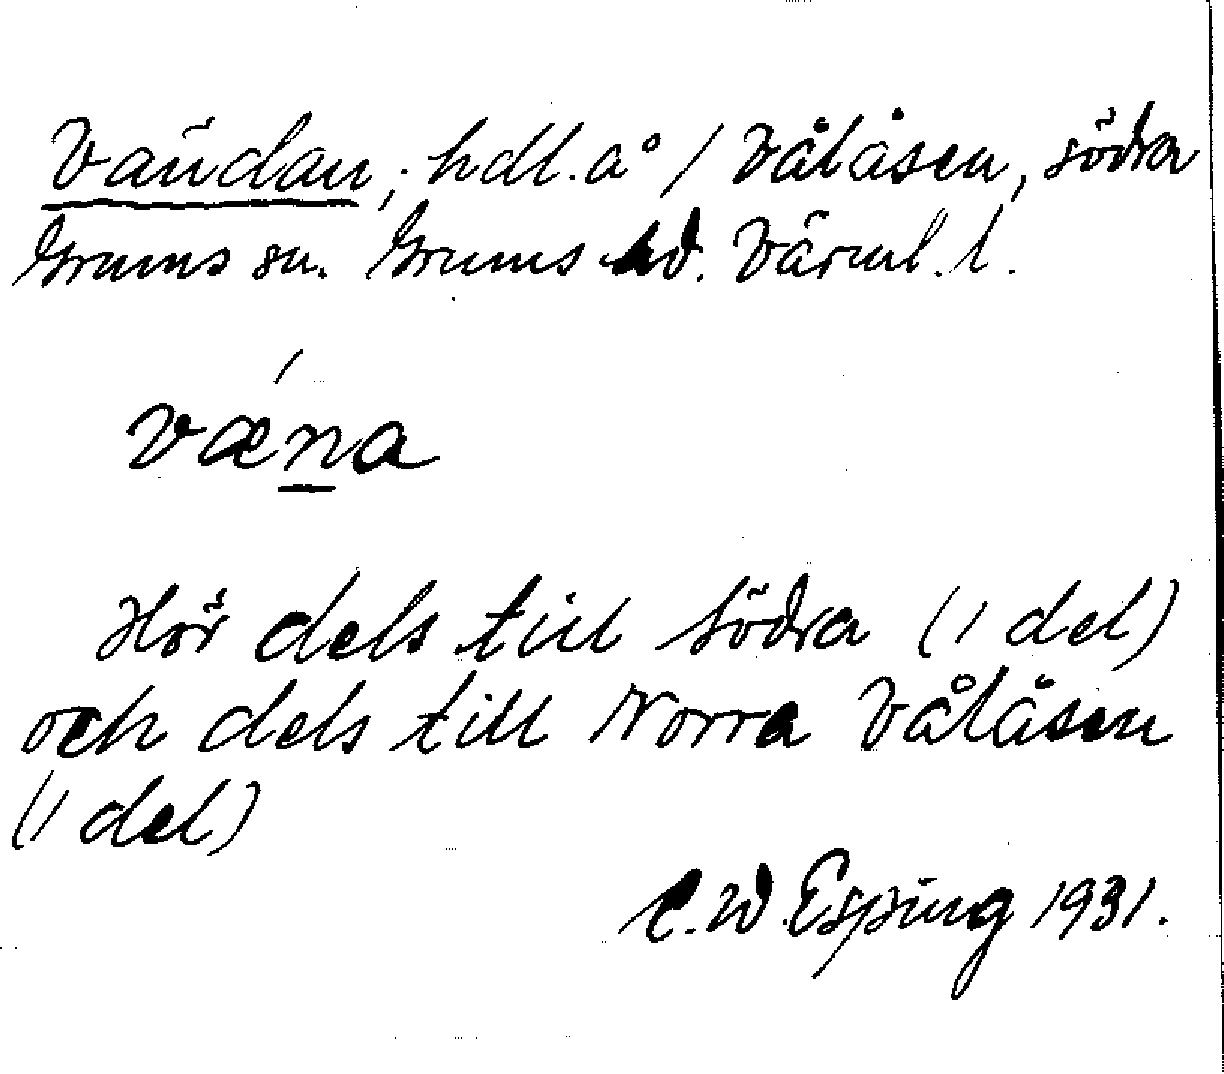 Vändan, hdl. å / Vålåsen, södra
Grums sn. Grums hd. Värml. l.
væna
Hör dels till Södra (1 del)
och dels till Norra Vålåsen
(1 del)
C. W. Esping 1931.